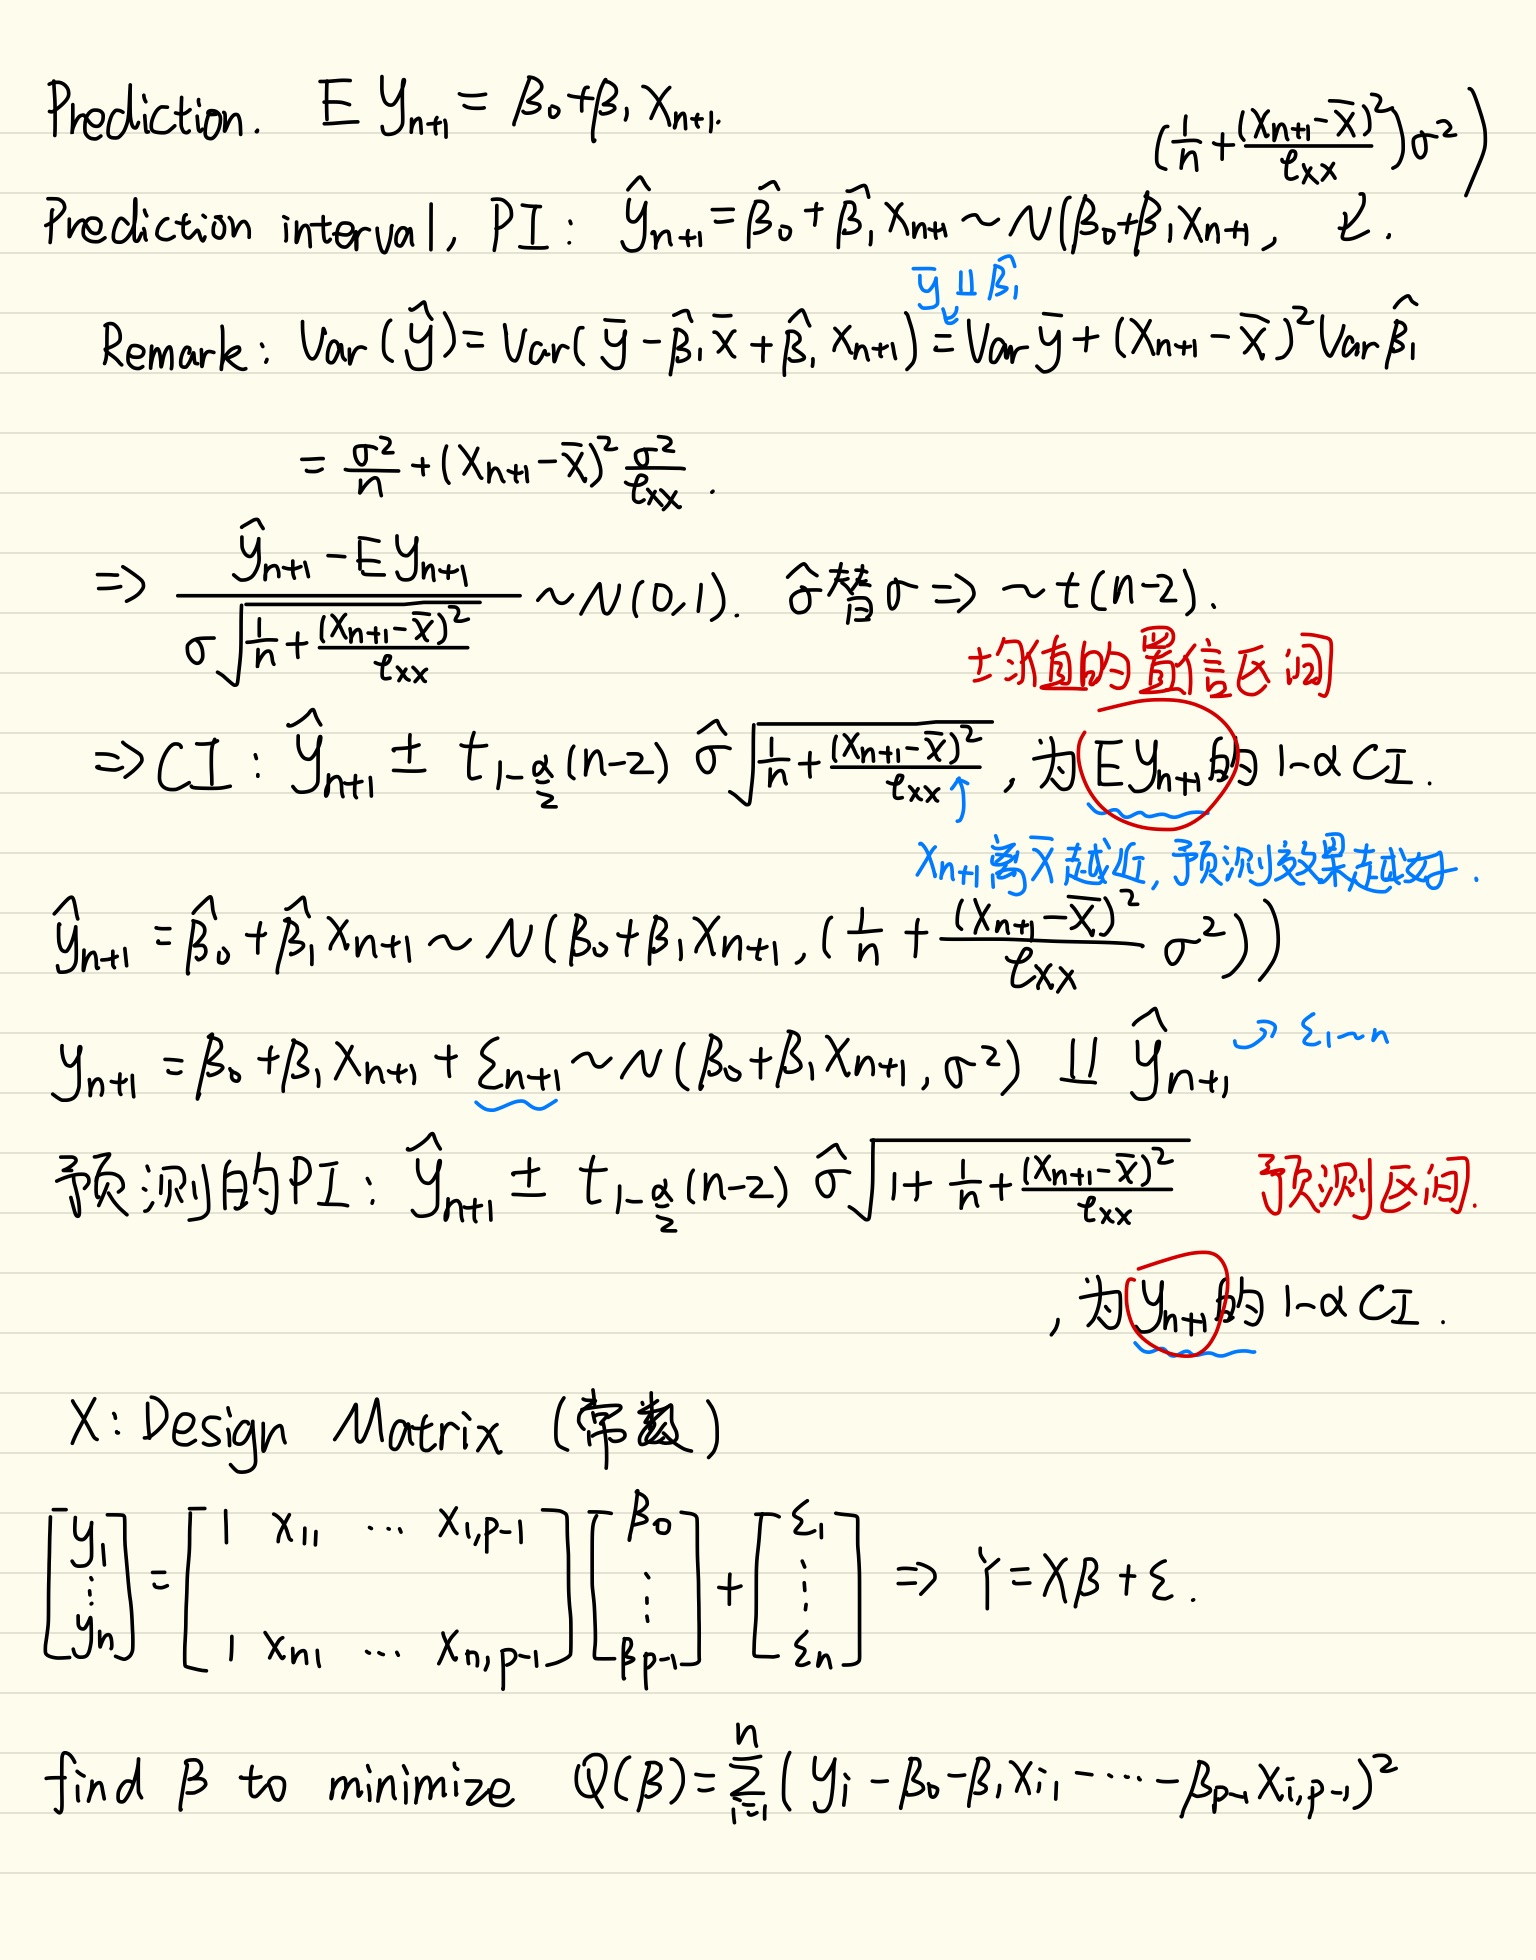 Prediction. E y_{n+1} = β₀ + β₁ x_{n+1}.
(1/n + (x_{n+1} - x̄)²/ℓ_{xx})σ² )
Prediction interval, PI: ŷ_{n+1} = β̂₀ + β̂₁ x_{n+1} ~ N(β₀+β₁x_{n+1}, ↙.
ȳ ⫫ β̂₁
Remark: Var(ŷ) = Var(ȳ - β̂₁x̄ + β̂₁ x_{n+1}) = Var ȳ + (x_{n+1} - x̄)² Var β̂₁
= σ²/n + (x_{n+1} - x̄)² σ²/ℓ_{xx}.
⇒ (ŷ_{n+1} - E y_{n+1}) / (σ√(1/n + (x_{n+1}-x̄)²/ℓ_{xx})) ~ N(0,1). σ̂替σ ⇒ ~ t(n-2).
均值的置信区间
⇒ CI: ŷ_{n+1} ± t_{1-α/2}(n-2) σ̂√(1/n + (x_{n+1}-x̄)²/ℓ_{xx}), 为 E y_{n+1} 的 1-α CI.
x_{n+1}离x̄越近, 预测效果越好.
ŷ_{n+1} = β̂₀ + β̂₁ x_{n+1} ~ N(β₀+β₁x_{n+1}, (1/n + (x_{n+1}-x̄)²/ℓ_{xx} σ²))
y_{n+1} = β₀ + β₁ x_{n+1} + ε_{n+1} ~ N(β₀+β₁x_{n+1}, σ²) ⫫ ŷ_{n+1} → ε_{1~n}
预测的PI: ŷ_{n+1} ± t_{1-α/2}(n-2) σ̂√(1 + 1/n + (x_{n+1}-x̄)²/ℓ_{xx}) 预测区间.
, 为 y_{n+1} 的 1-α CI.
X: Design Matrix (常数)
[y₁ ⋮ y_n] = [1 x₁₁ ⋯ x_{1,p-1} 1 x_{n1} ⋯ x_{n,p-1}] [β₀ ⋮ β_{p-1}] + [ε₁ ⋮ ε_n] ⇒ Y = Xβ + ε.
find β to minimize Q(β) = Σ_{i=1}^{n} (y_i - β₀ - β₁x_{i1} - ⋯ - β_{p-1}x_{i,p-1})²